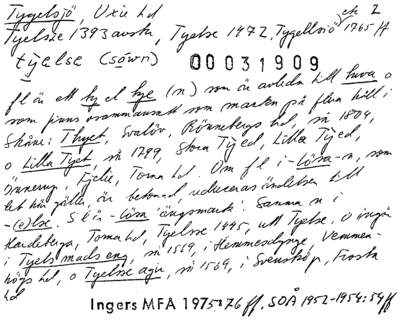 Tygelsjö, Oxie hd etc 2
Tyelsze 1393 avskr, Tyelse 1472, Tygellsiö 1765 ff
tȳelse (sǒwn) 00031909
fl ön ett ty el tye (n) som är avledn till huva o
som finns ovanmansatt som marken på flera håll i
Skåne: Thyet, Svalöv, Rönnebergs hd, nä 1809,
o Lilla Tyet nä 1799, Stora Tyed, Lilla Tyed,
Önnerup, Fjelie, Torna hd. Om fl i -lösa-n, som
det här gäller, är betonad reduceras ändelsen till
-(e)lse. S l i n -lösa 'ängsmark'. Samma n i
Hardeberga, Torna hd, Tyelsse 1445, utt Tyelse. O ingår
i Tyels mads eng, nä 1569, i Hemmesdynge, Vemmen-
högs hd, o Tyelsse agir, nä 1569, i Svensköp, Frosta
hd
Ingers MFA 1975-76 ff, SOÅ 1952-1954:54 ff